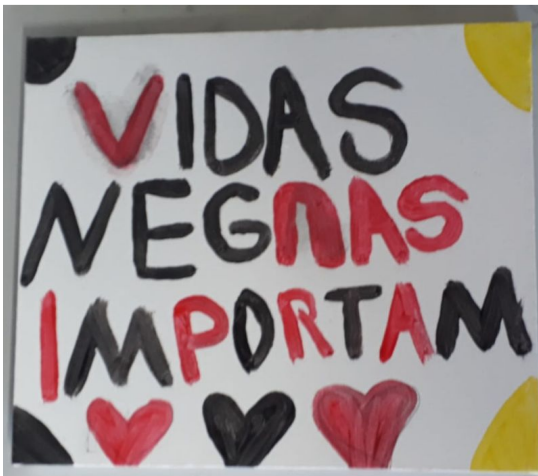 VIDAS
NEGRAS
IMPORTAM